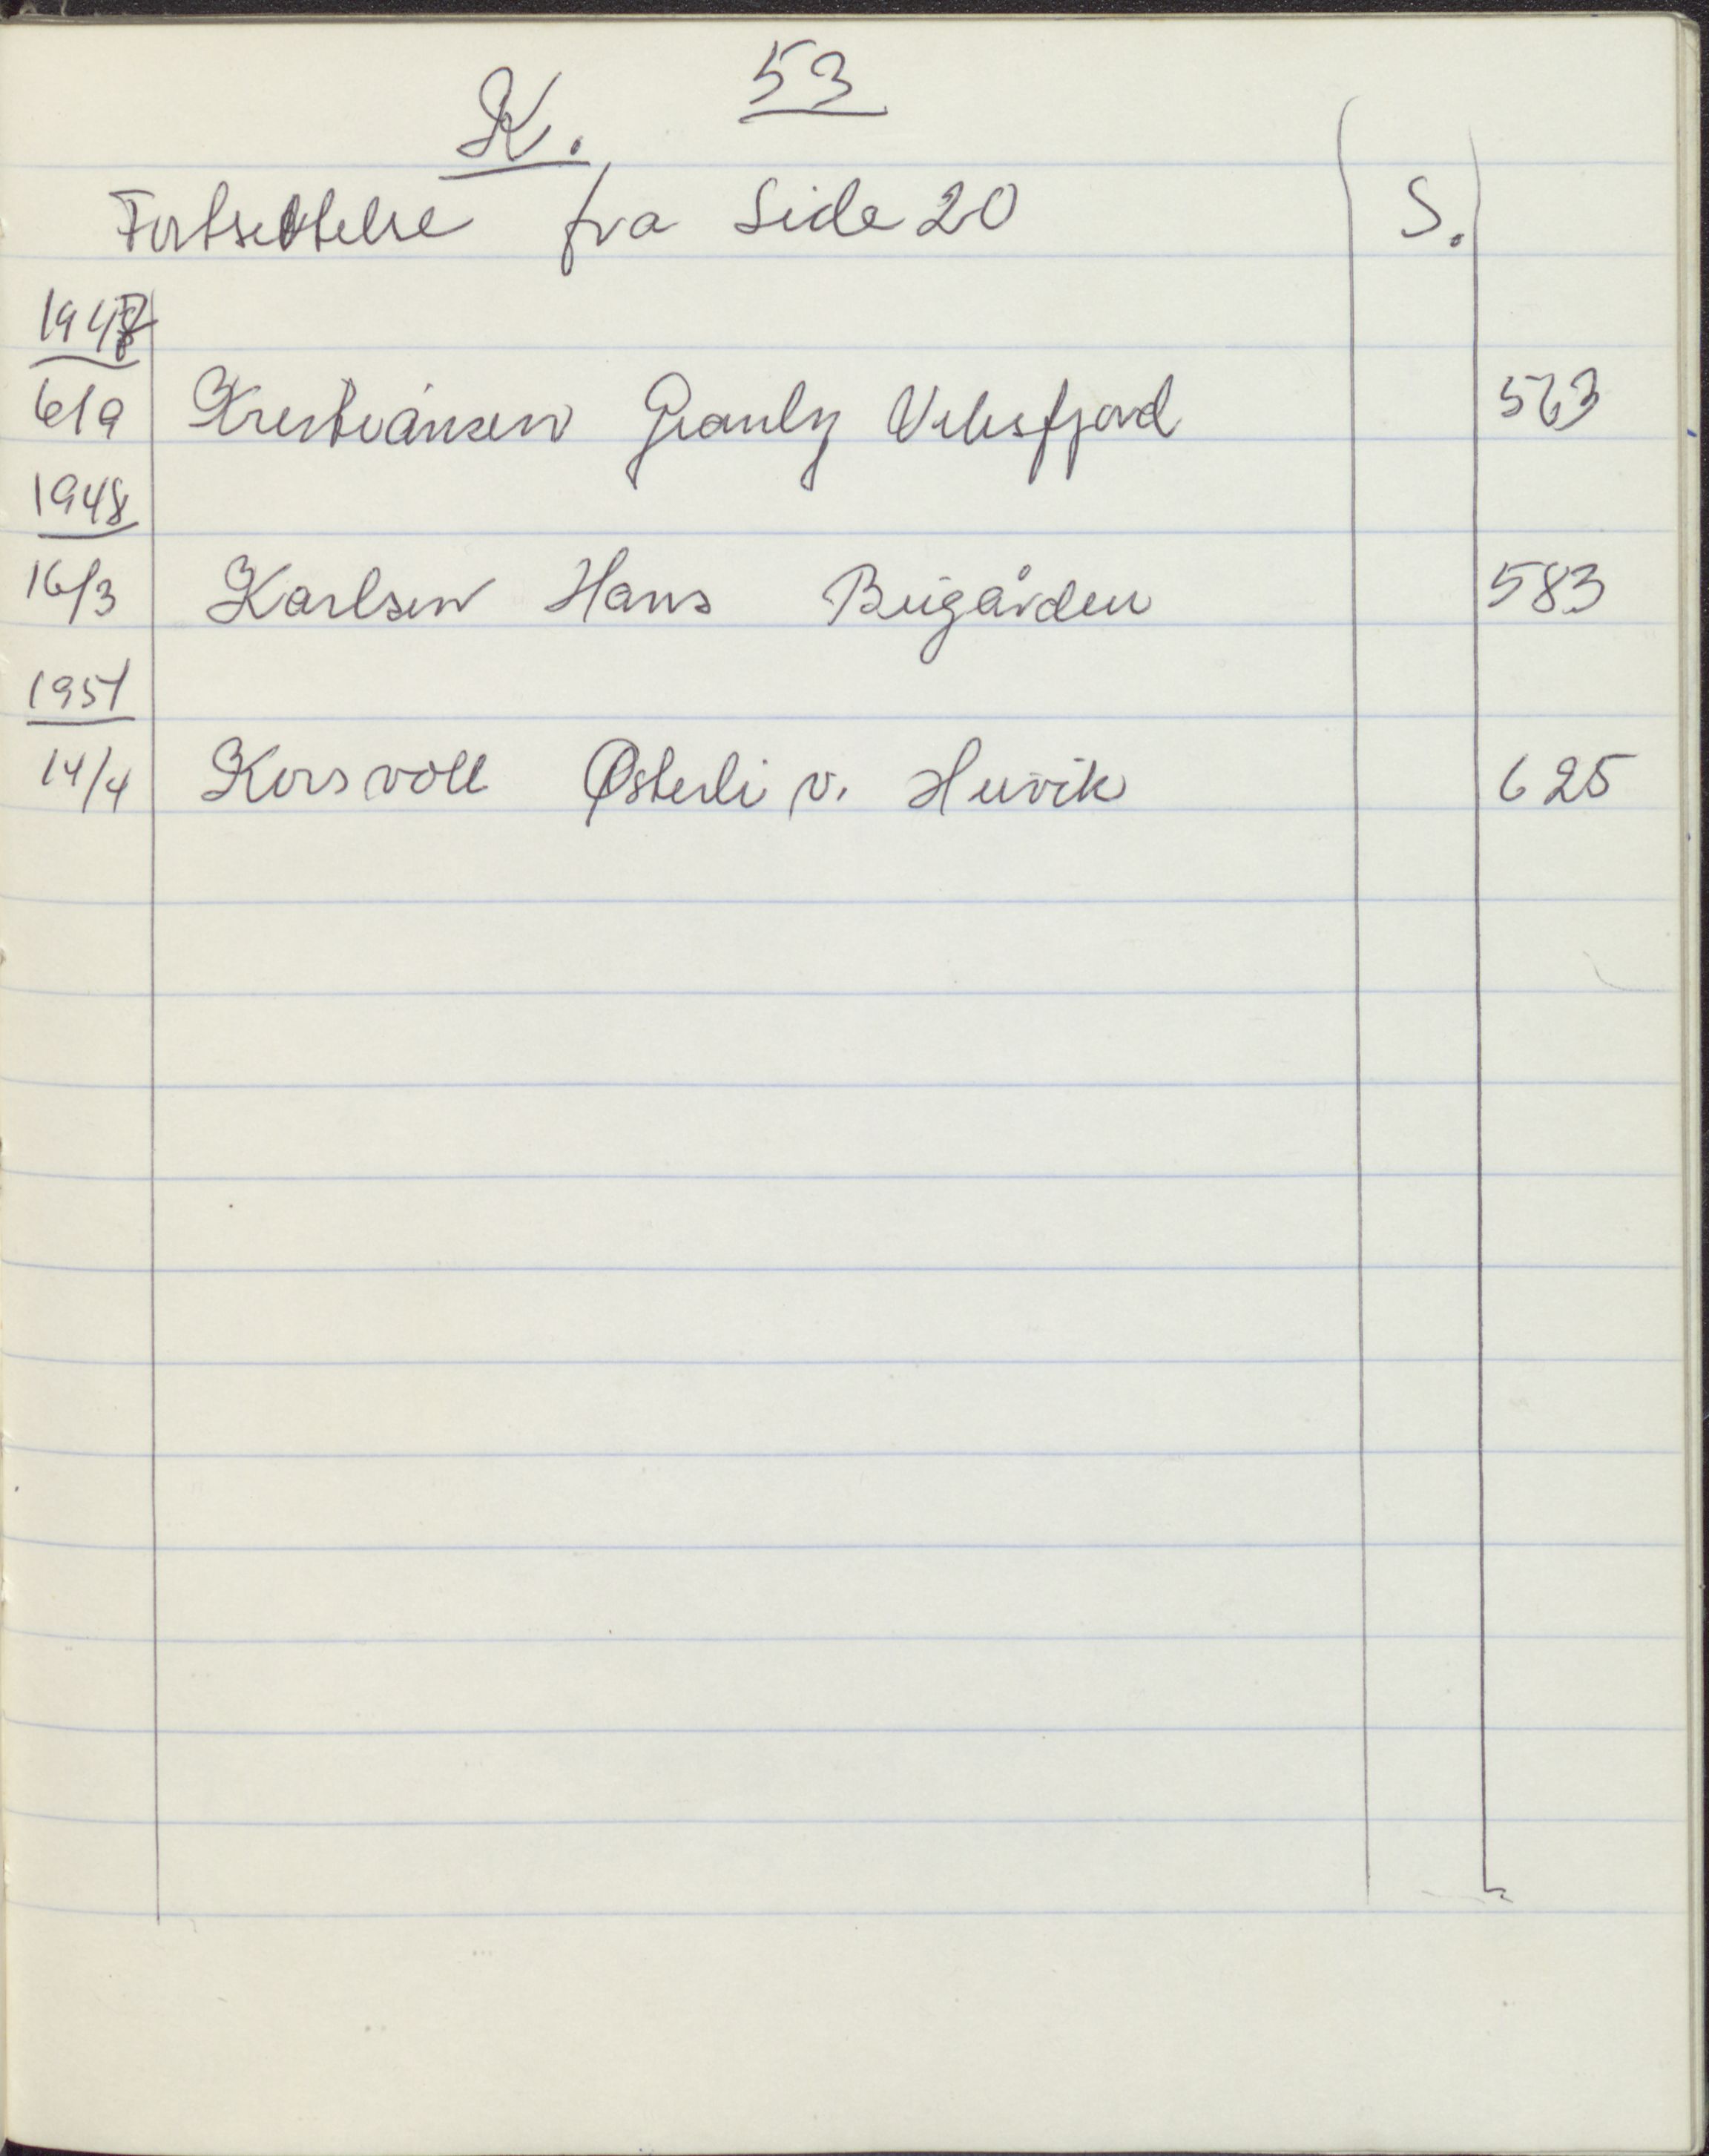 53
K.
Fortsettelse fra Side 20 S.
1947
6/9 Kristiansen Grauly Velsfjord 563
1948
16/3 Karlsen Hans Bergården 583
1951
14/4 Korsvoll Østerli v. Huvik 625